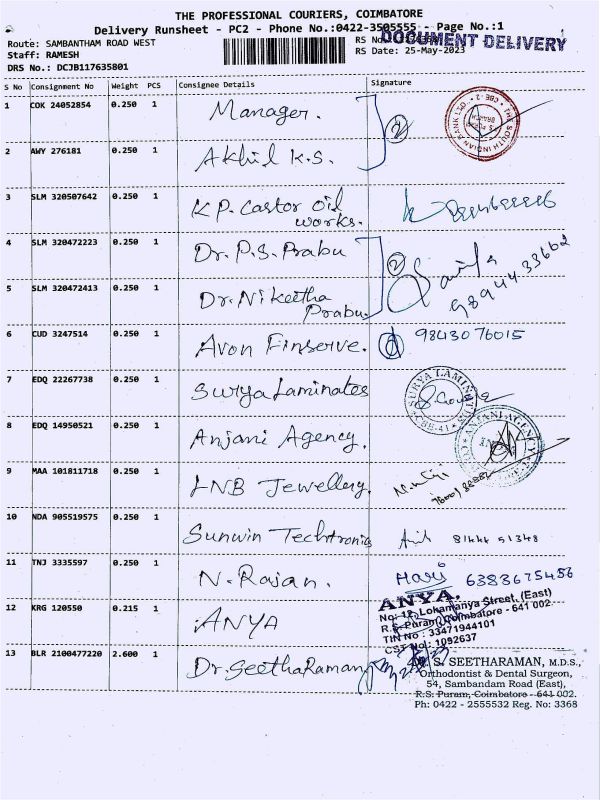 THE PROFESSIONAL COURIERS, COIMBATORE
Delivery Runsheet - PC2 - Phone No.:0422-3505555 - Page No.:1
DOCUMENT DELIVERY
Route: SAMBANTHAM ROAD WEST
RS No
Staff: RAMESH
RS Date: 25-May-2023
DRS No.: DCJB117635801
S No Consignment No Weight PCS Consignee Details Signature
1 COK 24052854 0.250 1 Manager. 2
2 AWY 276181 0.250 1 Akhil K.S.
3 SLM 320507642 0.250 1 K.P. Castor Oil
works.
4 SLM 320472223 0.250 1 Dr. P.S. Prabu 2
5 SLM 320472413 0.250 1 Dr. Nikeetha
Prabu. 9894433662
6 CUD 3247514 0.250 1 Avon Finserve. 98430 76015
7 EDQ 22267738 0.250 1 Surya Laminates
SURYA LAMINATES
8 EDQ 14950521 0.250 1 Anjani Agency.
ANJANI AGENCY
9 MAA 101811718 0.250 1 LNB Jewellery.
10 NDA 905519575 0.250 1 Sunwin Techtronics 81444 51348
11 TNJ 3335597 0.250 1 N. Rajan. Hari 6383675486
12 KRG 120550 0.215 1 ANYA
ANYA.
No: 12, Lokamanya Street, (East)
R.S. Puram, Coimbatore - 641 002
TIN No : 33471944101
CST No : 1092637
13 BLR 2100477220 2.600 1 Dr. SeethaRaman
Dr. S. SEETHARAMAN, M.D.S.,
Orthodontist & Dental Surgeon,
54, Sambandam Road (East),
R.S. Puram, Coimbatore - 641 002.
Ph: 0422 - 2555532 Reg. No: 3368